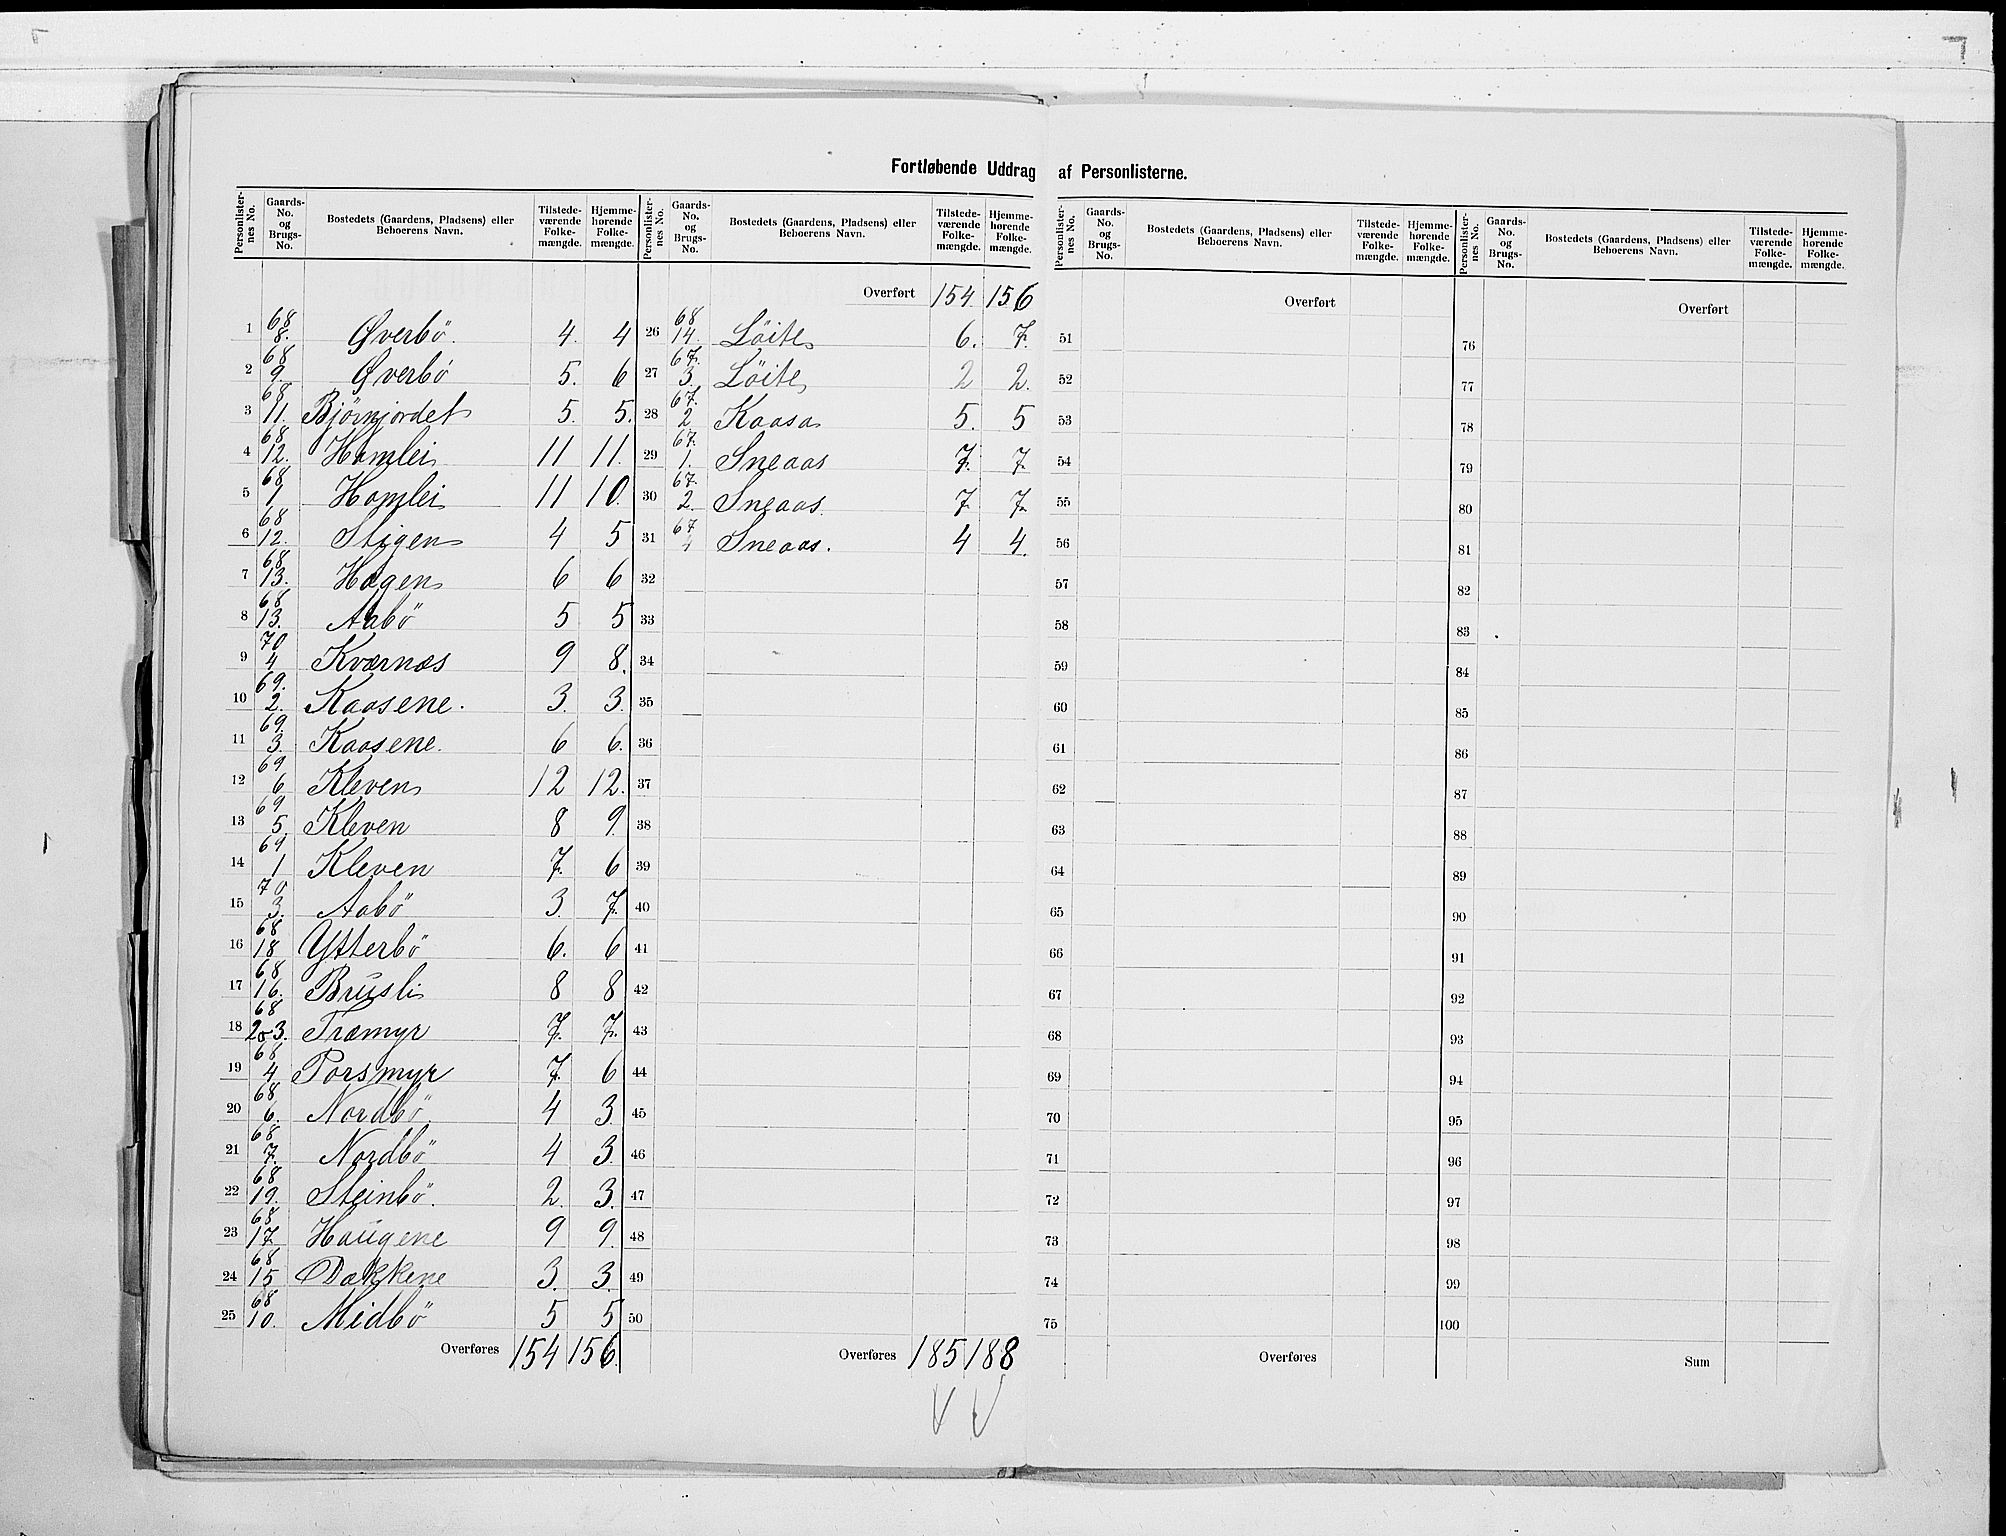 Fortløbende Uddrag af Personlisterne.
Personlisternes No. | Gaards-No. og Brugs-No. | Bostedets (Gaardens, Pladsens) eller Beboerens Navn. | Tilstedeværende Folkemængde. | Hjemmehørende Folkemængde.
1 68 8. Øverbö. 4. 4
2 68 9. Øverbö 5. 6
3 68 11. Björnjordet 5. 5.
4 68 12. Hamlei 11 11.
5 68 1 Hamlei 11 10.
6 68 12. Stigen 4 5
7 68 13. Hagen 6 6
8 68 13. Aabö 5 5
9 70 4 Kværnæs 9 8.
10 69. 2. Kaasene. 3. 3.
11 69. 3. Kaasene. 6 6.
12 69 6 Kleven 12 12.
13 69 5. Kleven 8 9.
14 69 1 Kleven 7. 6
15 70 3. Aabö 3. 7.
16 68 18 Ytterbö 6. 6
17 68 16. Brusli 8 8
18 68 2o3. Træmyr 7. 7.
19 68 4 Porsmyr 7. 6
20 68 6. Nordbö 4 3.
21 68 7. Nordbö 4 3.
22 68 19. Steinbö. 2. 3.
23 68 17 Haugene 9 9.
24 68 15 Dækkene 3. 3.
25 68 10. Midbö 5 5
Overføres 154 156.
Personlisternes No. | Gaards-No. og Brugs-No. | Bostedets (Gaardens, Pladsens) eller Beboerens Navn. | Tilstedeværende Folkemængde. | Hjemmehørende Folkemængde.
Overført 154. 156
26 68 14. Löite 6. 7.
27 67. 3. Löite 2 2.
28 67. 2 Kaasa 5. 5
29 67. 1. Sneaas 7. 7.
30 67. 2. Sneaas. 7 7.
31 67 Sneaas. 4 4.
32
33
34
35
36
37
38
39
40
41
42
43
44
45
46
47
48
49
50
Overføres 185 188
Personlisternes No. | Gaards-No. og Brugs-No. | Bostedets (Gaardens, Pladsens) eller Beboerens Navn. | Tilstedeværende Folkemængde. | Hjemmehørende Folkemængde.
Overført
51
52
53
54
55
56
57
58
59
60
61
62
63
64
65
66
67
68
69
70
71
72
73
74
75
Overføres
Personlisternes No. | Gaards-No. og Brugs-No. | Bostedets (Gaardens, Pladsens) eller Beboerens Navn. | Tilstedeværende Folkemængde. | Hjemmehørende Folkemængde.
Overført
76
77
78
79
80
81
82
83
84
85
86
87
88
89
90
91
92
93
94
95
96
97
98
99
100
Sum